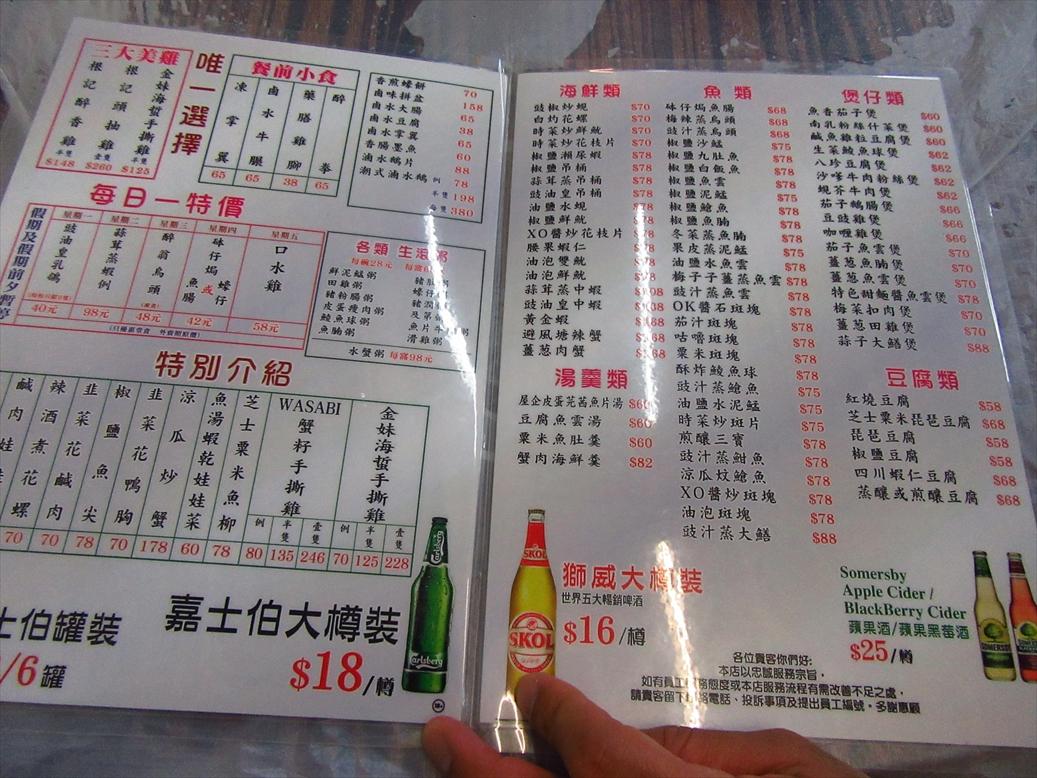 三大美雞
根記醉香雞 半隻 $148
根記頭抽雞 壹隻 $260
金妹海蜇手撕雞 半隻 $125
唯一選擇
餐前小食
凍掌翼 65
鹵水牛腱 65
藥膳雞腳 38
醉拳 65
香煎蠔餅 70
鹵味拼盆 158
鹵水大腸 65
鹵水豆腐 38
鹵水掌翼 65
香腸墨魚 60
滷水鵝片 88
潮式滷水鵝 例 78
半隻 198
每隻 380
每日一特價
假期及假期前夕暫停
星期一 豉油皇乳鴿 40元
星期二 蒜茸蒸蝦 例 98元
星期三 醉翁烏頭 48元
星期四 砵仔焗魚腸 或 蠔仔 42元
星期五 口水雞 58元
各類生滾粥
每碗28元
鮮泥鯭粥
田雞粥
豬粉腸粥
虎蛋瘦肉粥
鯪魚球粥
魚腩粥
滑雞粥
水蟹粥 每窩98元
特別介紹
鹹肉娃娃螺 70
辣酒煮花螺 70
韭菜花鹹肉 78
椒鹽魚尖 70
韭菜花鴨胸 178
涼瓜炒蟹 60
魚湯蝦乾娃娃菜 78
芝士粟米魚柳 80
WASABI
蟹籽手撕雞
例 半隻 壹隻
135 246
金妹海蜇手撕雞
例 半隻 壹隻
70 125 228
士伯罐裝
/6罐
嘉士伯大樽裝
$18/樽
Carlsberg
海鮮類
豉椒炒蜆 $70
白灼花螺 $70
時菜炒鮮魷 $70
時菜炒花枝片 $70
椒鹽瀨尿蝦 $78
椒鹽吊桶 $78
蒜茸蒸吊桶 $78
豉油皇吊桶 $78
油鹽水蜆 $78
椒鹽鮮魷 $78
XO醬炒花枝片 $78
腰果蝦仁 $78
油泡雙魷 $78
油泡鮮魷 $78
蒜茸蒸中蝦
豉油皇中蝦
黃金蝦
避風塘辣蟹
薑葱肉蟹
湯羹類
屋企皮蛋芫茜魚片湯
豆腐魚雲湯 $60
粟米魚肚羹 $60
蟹肉海鮮羹 $82
魚類
砵仔焗魚腸 $68
梅辣蒸烏頭 $68
豉汁蒸烏頭 $68
椒鹽沙鯭 $75
椒鹽九肚魚 $78
椒鹽白飯魚 $78
椒鹽魚雲 $78
椒鹽泥鯭 $75
椒鹽鱠魚 $78
椒鹽魚腩 $78
冬菜蒸魚腩 $78
果皮蒸泥鯭 $75
油鹽水魚雲 $78
梅子子薑蒸魚雲 $78
豉汁蒸魚雲 $78
OK醬石斑塊 $78
茄汁斑塊 $78
咕嚕斑塊 $78
粟米斑塊 $78
酥炸鯪魚球 $78
豉汁蒸鱠魚 $75
油鹽水泥鯭 $75
時菜炒斑片 $75
煎釀三寶 $78
豉汁蒸魽魚 $78
涼瓜炆鱠魚 $78
XO醬炒斑塊 $78
油泡斑塊 $78
豉汁蒸大鱔 $88
煲仔類
魚香茄子煲 $60
南乳粉絲什菜煲 $60
鹹魚雞粒豆腐煲 $60
生菜鯪魚球煲 $62
八珍豆腐煲 $62
沙嗲牛肉粉絲煲 $62
蜆芥牛肉煲 $62
茄子鵝腸煲 $66
豆豉雞煲 $66
咖喱雞煲 $66
茄子魚雲煲 $70
薑葱魚腩煲 $70
薑葱魚雲煲 $70
特色甜麵醬魚雲煲 $78
梅菜扣肉煲 $70
薑葱田雞煲 $70
蒜子大鱔煲 $88
豆腐類
紅燒豆腐 $58
芝士粟米琵琶豆腐 $68
琵琶豆腐 $58
椒鹽豆腐 $58
四川蝦仁豆腐 $68
蒸釀或煎釀豆腐 $68
SKOL
獅威大樽裝
世界五大暢銷啤酒
$16/樽
Somersby
Apple Cider /
BlackBerry Cider
蘋果酒/蘋果黑莓酒
$25/樽
各位貴客你們好:
本店以忠誠服務宗旨,
如有員工服務態度或本店服務流程有需改善不足之處,
請貴客留下聯絡電話、投訴事項及提出員工編號。多謝惠顧